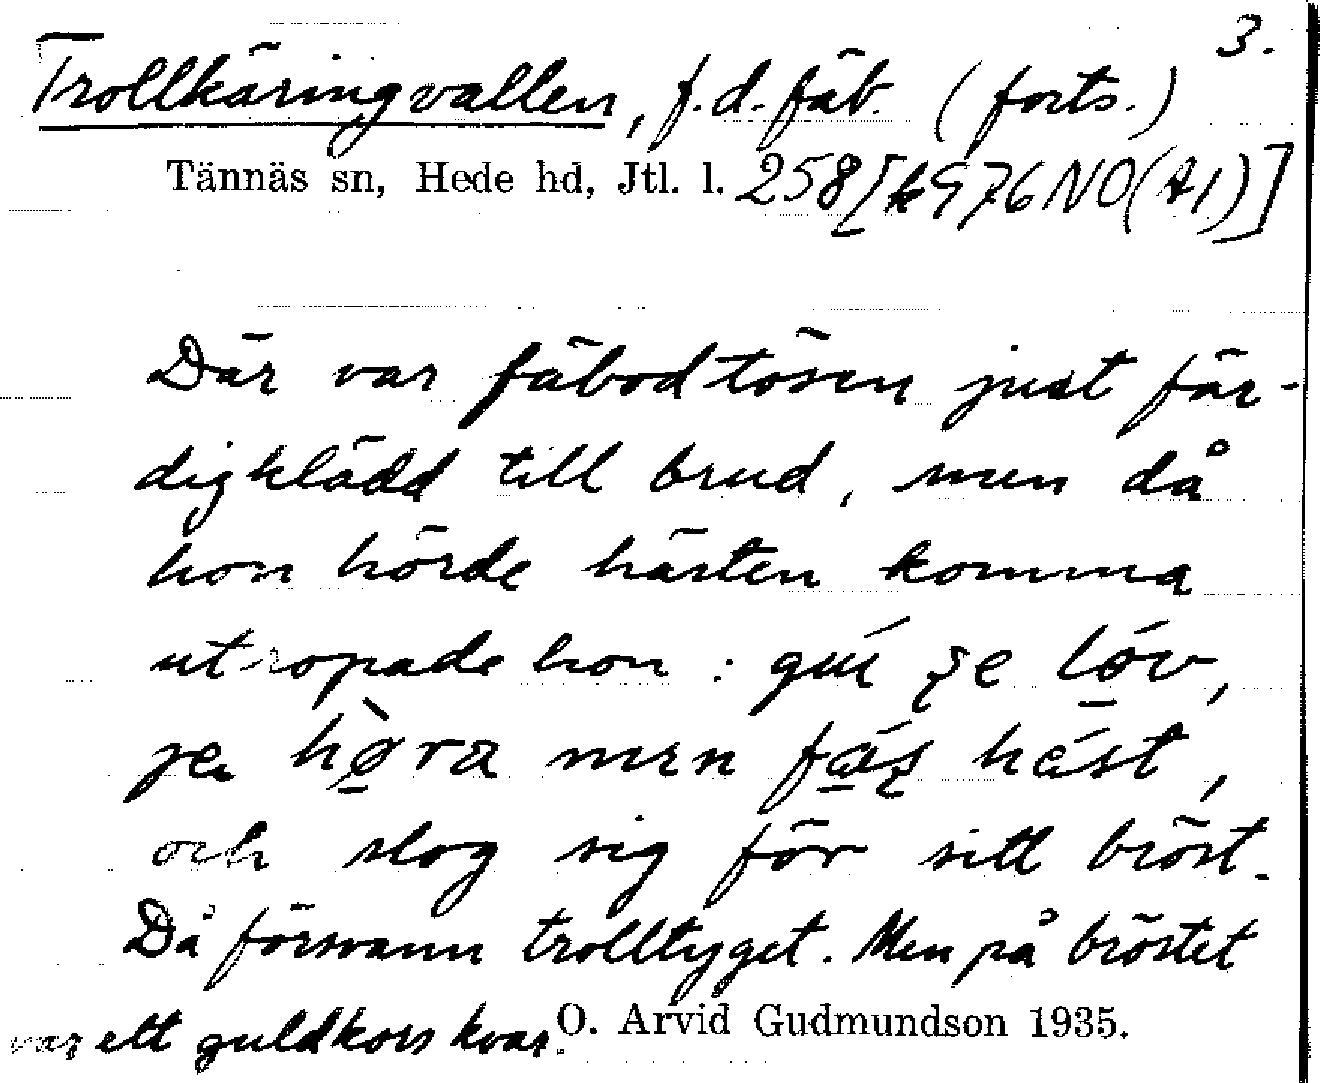 3.
Trollkäringvallen, f.d. fäb. (forts.)
Tännäs sn, Hede hd, Jtl. l. 258[k976NO(A1)]
Där var fäbodtösen just fär-
digklädd till brud, men då
hon hörde hästen komma
utropade hon : gúi še lóv,
je hø̀ra men fáš hést,
och slog sig för sitt bröst.
Då försvann trolltyget. Men på bröstet
var ett guldkors kvar.
O. Arvid Gudmundson 1935.